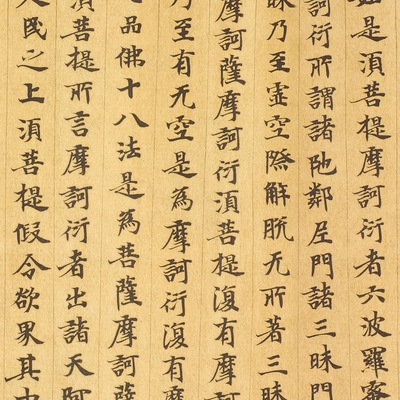 如是須菩提摩訶衍者六波羅蜜
訶衍所謂諸陁鄰尼門諸三昧門
昧乃至虛空際解脫无所著三昧
摩訶薩摩訶衍須菩提復有摩訶
乃至有无空是為摩訶衍復有摩
品佛十八法是為菩薩摩訶薩
須菩提所言摩訶衍者出諸天阿
民之上須菩提假令欲界其中